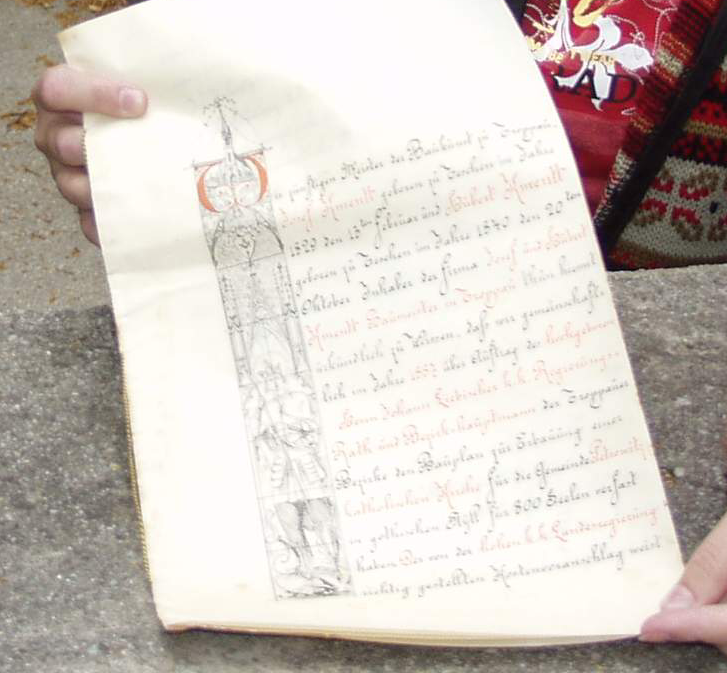 LAD
Die zünftigen Meister der Baukunst zu Troppau.
Josef Hmentt geboren zu Teschen im Jahre
1899 den 13ten Februar und Hubert Hmentt
geboren zu Teschen im Jahre 1849 den 20ten
Oktober Inhaber der Firma Josef und Hubert
Hmentt Baumeister in Troppau thun hiemit
urkundlich zu Wissen, daß wir gemeinschaft-
lich im Jahre über Auftrag des hochgeboren
Herrn Johann k. k. Regierungs-
Rath und Bezirkshauptmann der Troppauer
Bezirke den Bauplan zur Erbauung einer
Catholischen Kirche für die Gemeinde
in gothischen Styll für 800 Seelen verfast
haben Der von der hohen k. k. Landesregierung
richtig gestellten Kostenvoranschlag weist